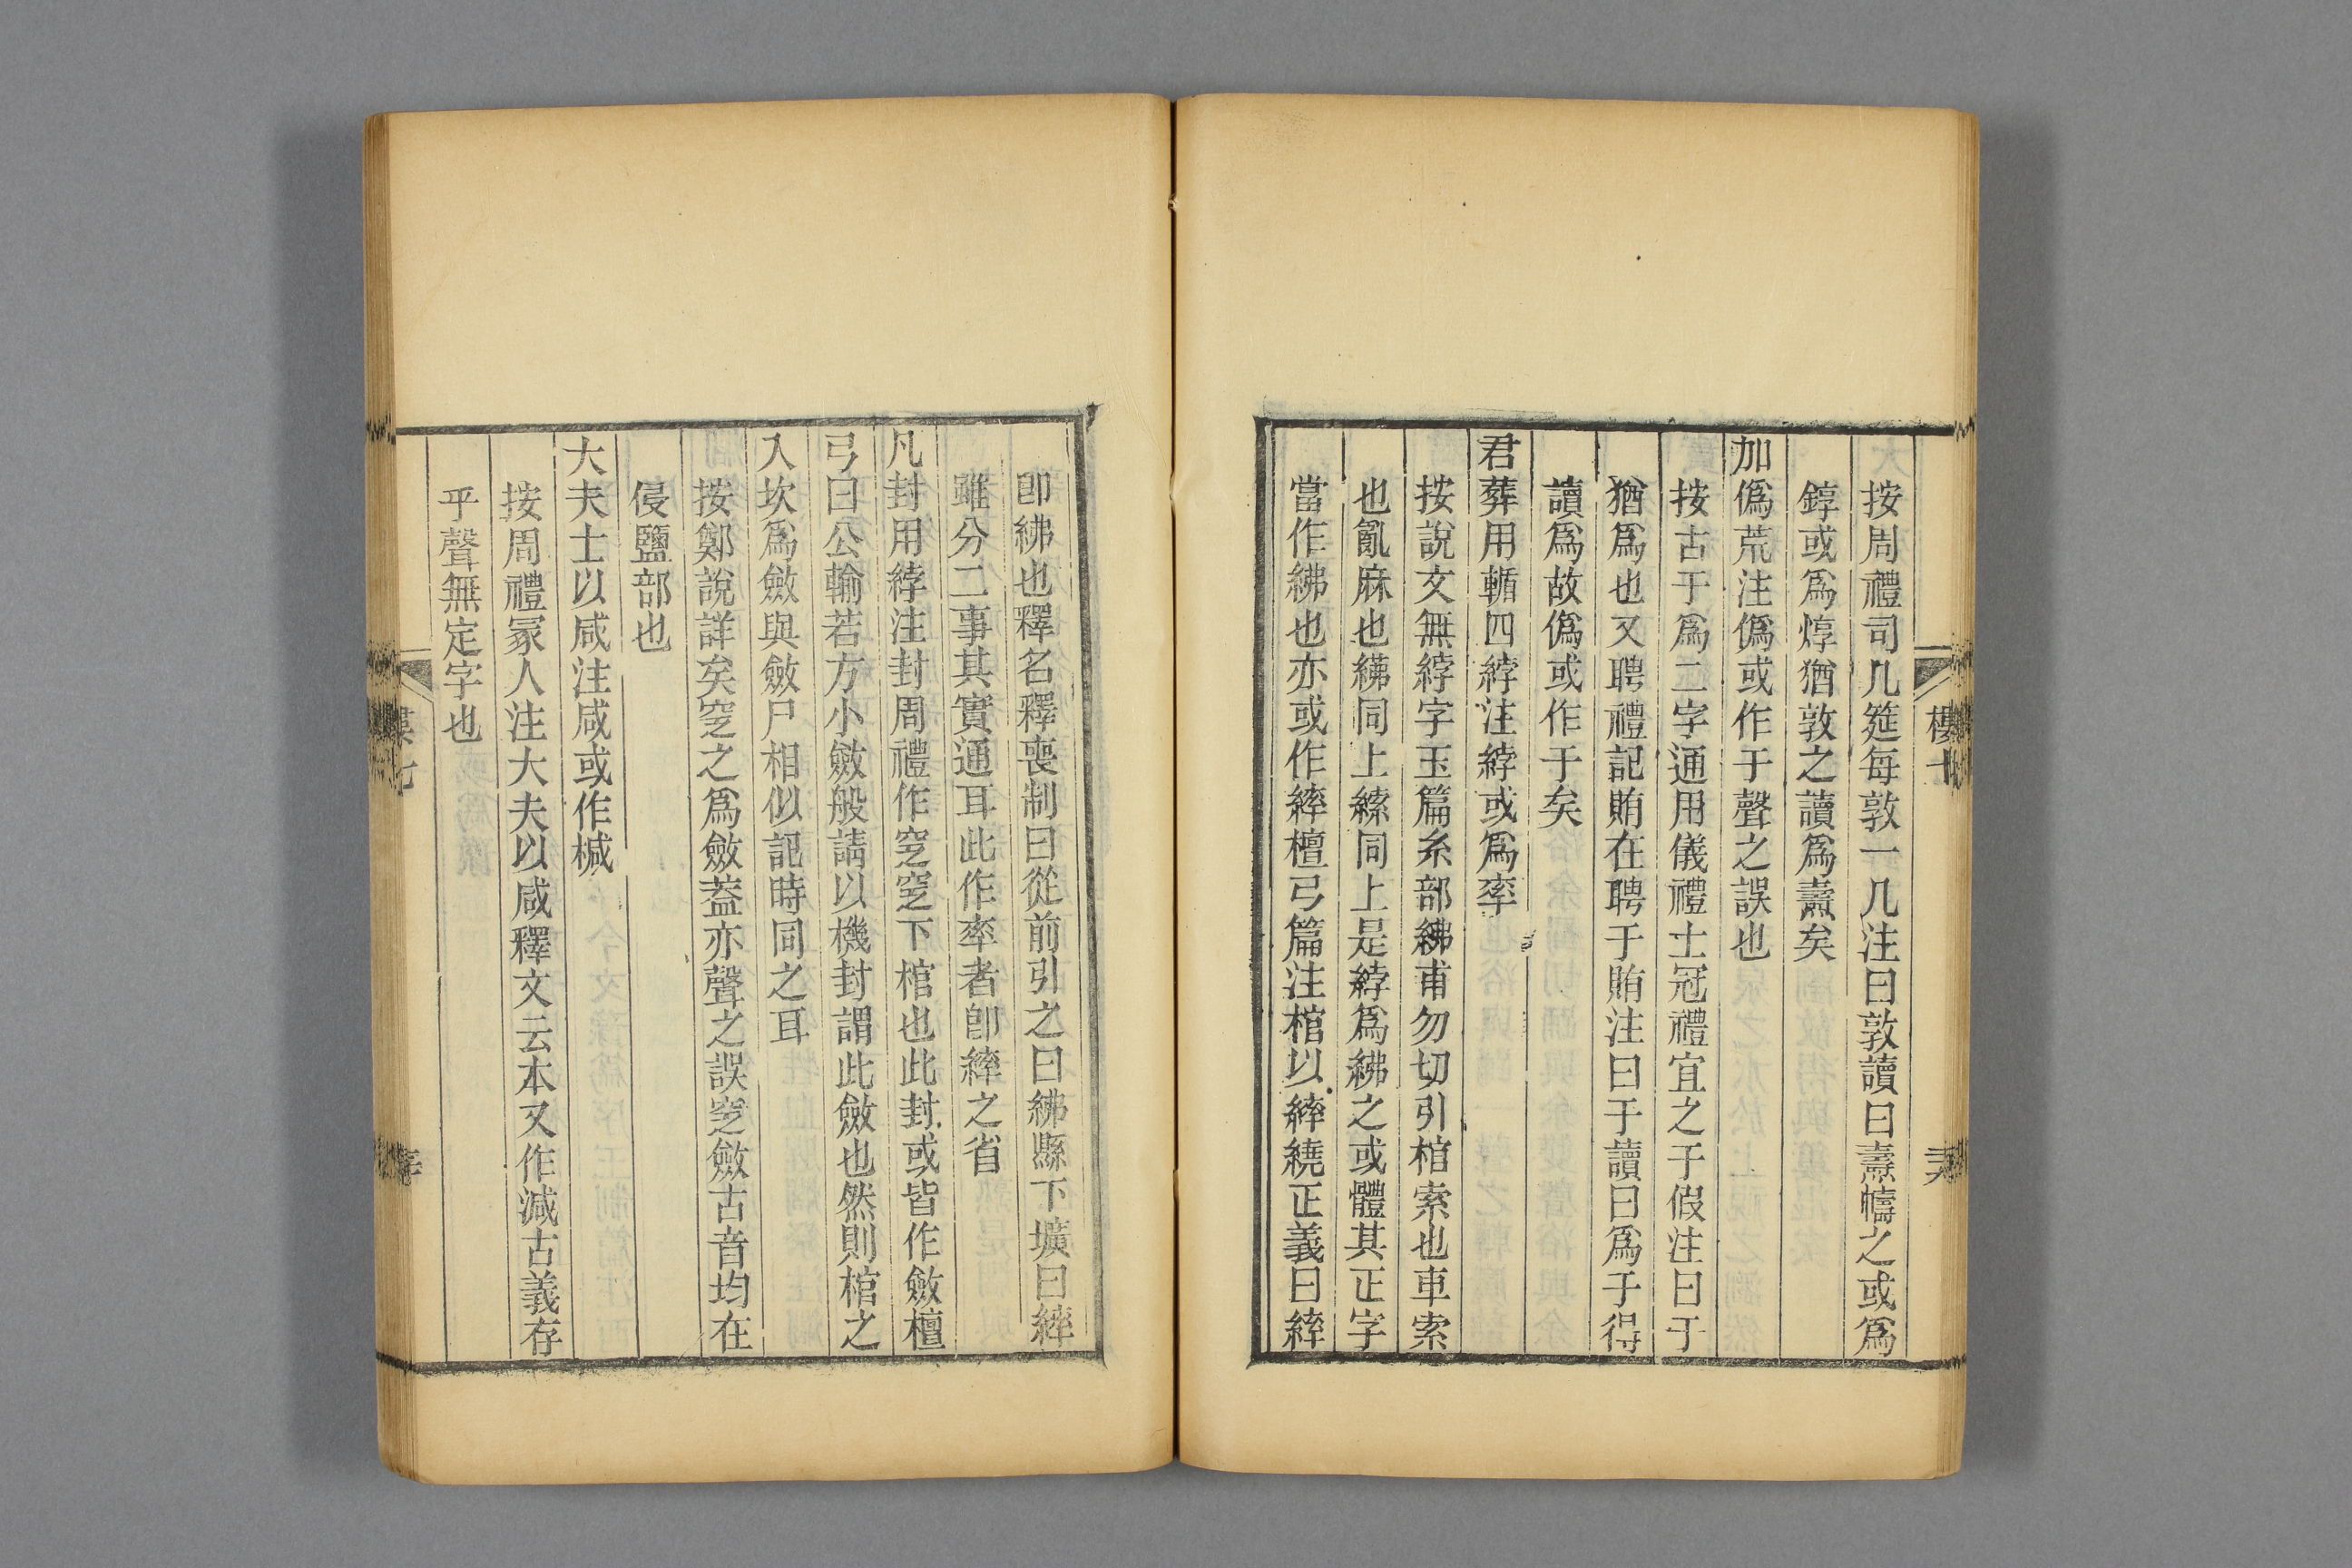 按周禮司几筵每敦一几注曰敦讀曰燾幬之或爲
錞或爲焞猶敦之讀爲燾矣
加僞荒注僞或作于聲之誤也
按古于爲二字通用儀禮士冠禮宜之于假注曰于
猶爲也又聘禮記賄在聘于賄注曰于讀曰爲于得
讀爲故僞或作于矣
君葬用輴四綍注綍或爲率
按說文無綍字玉篇糸部紼甫勿切引棺索也車索
也亂麻也綍同上縤同上是綍爲紼之或體其正字
當作紼也亦或作繂檀弓篇注棺以繂繞正義曰繂
卽紼也釋名釋喪制曰從前引之曰紼縣下壙曰繂
雖分二事其實通耳此作率者卽繂之省
凡封用綍注封周禮作窆窆下棺也此封或皆作斂檀
弓曰公輸若方小斂般請以機封謂此斂也然則棺之
入坎爲斂與斂尸相似記時同之耳
按鄭說詳矣窆之爲斂葢亦聲之誤窆斂古音均在
侵鹽部也
大夫士以咸注咸或作椷
按周禮冢人注大夫以咸釋文云本又作減古義存
乎聲無定字也